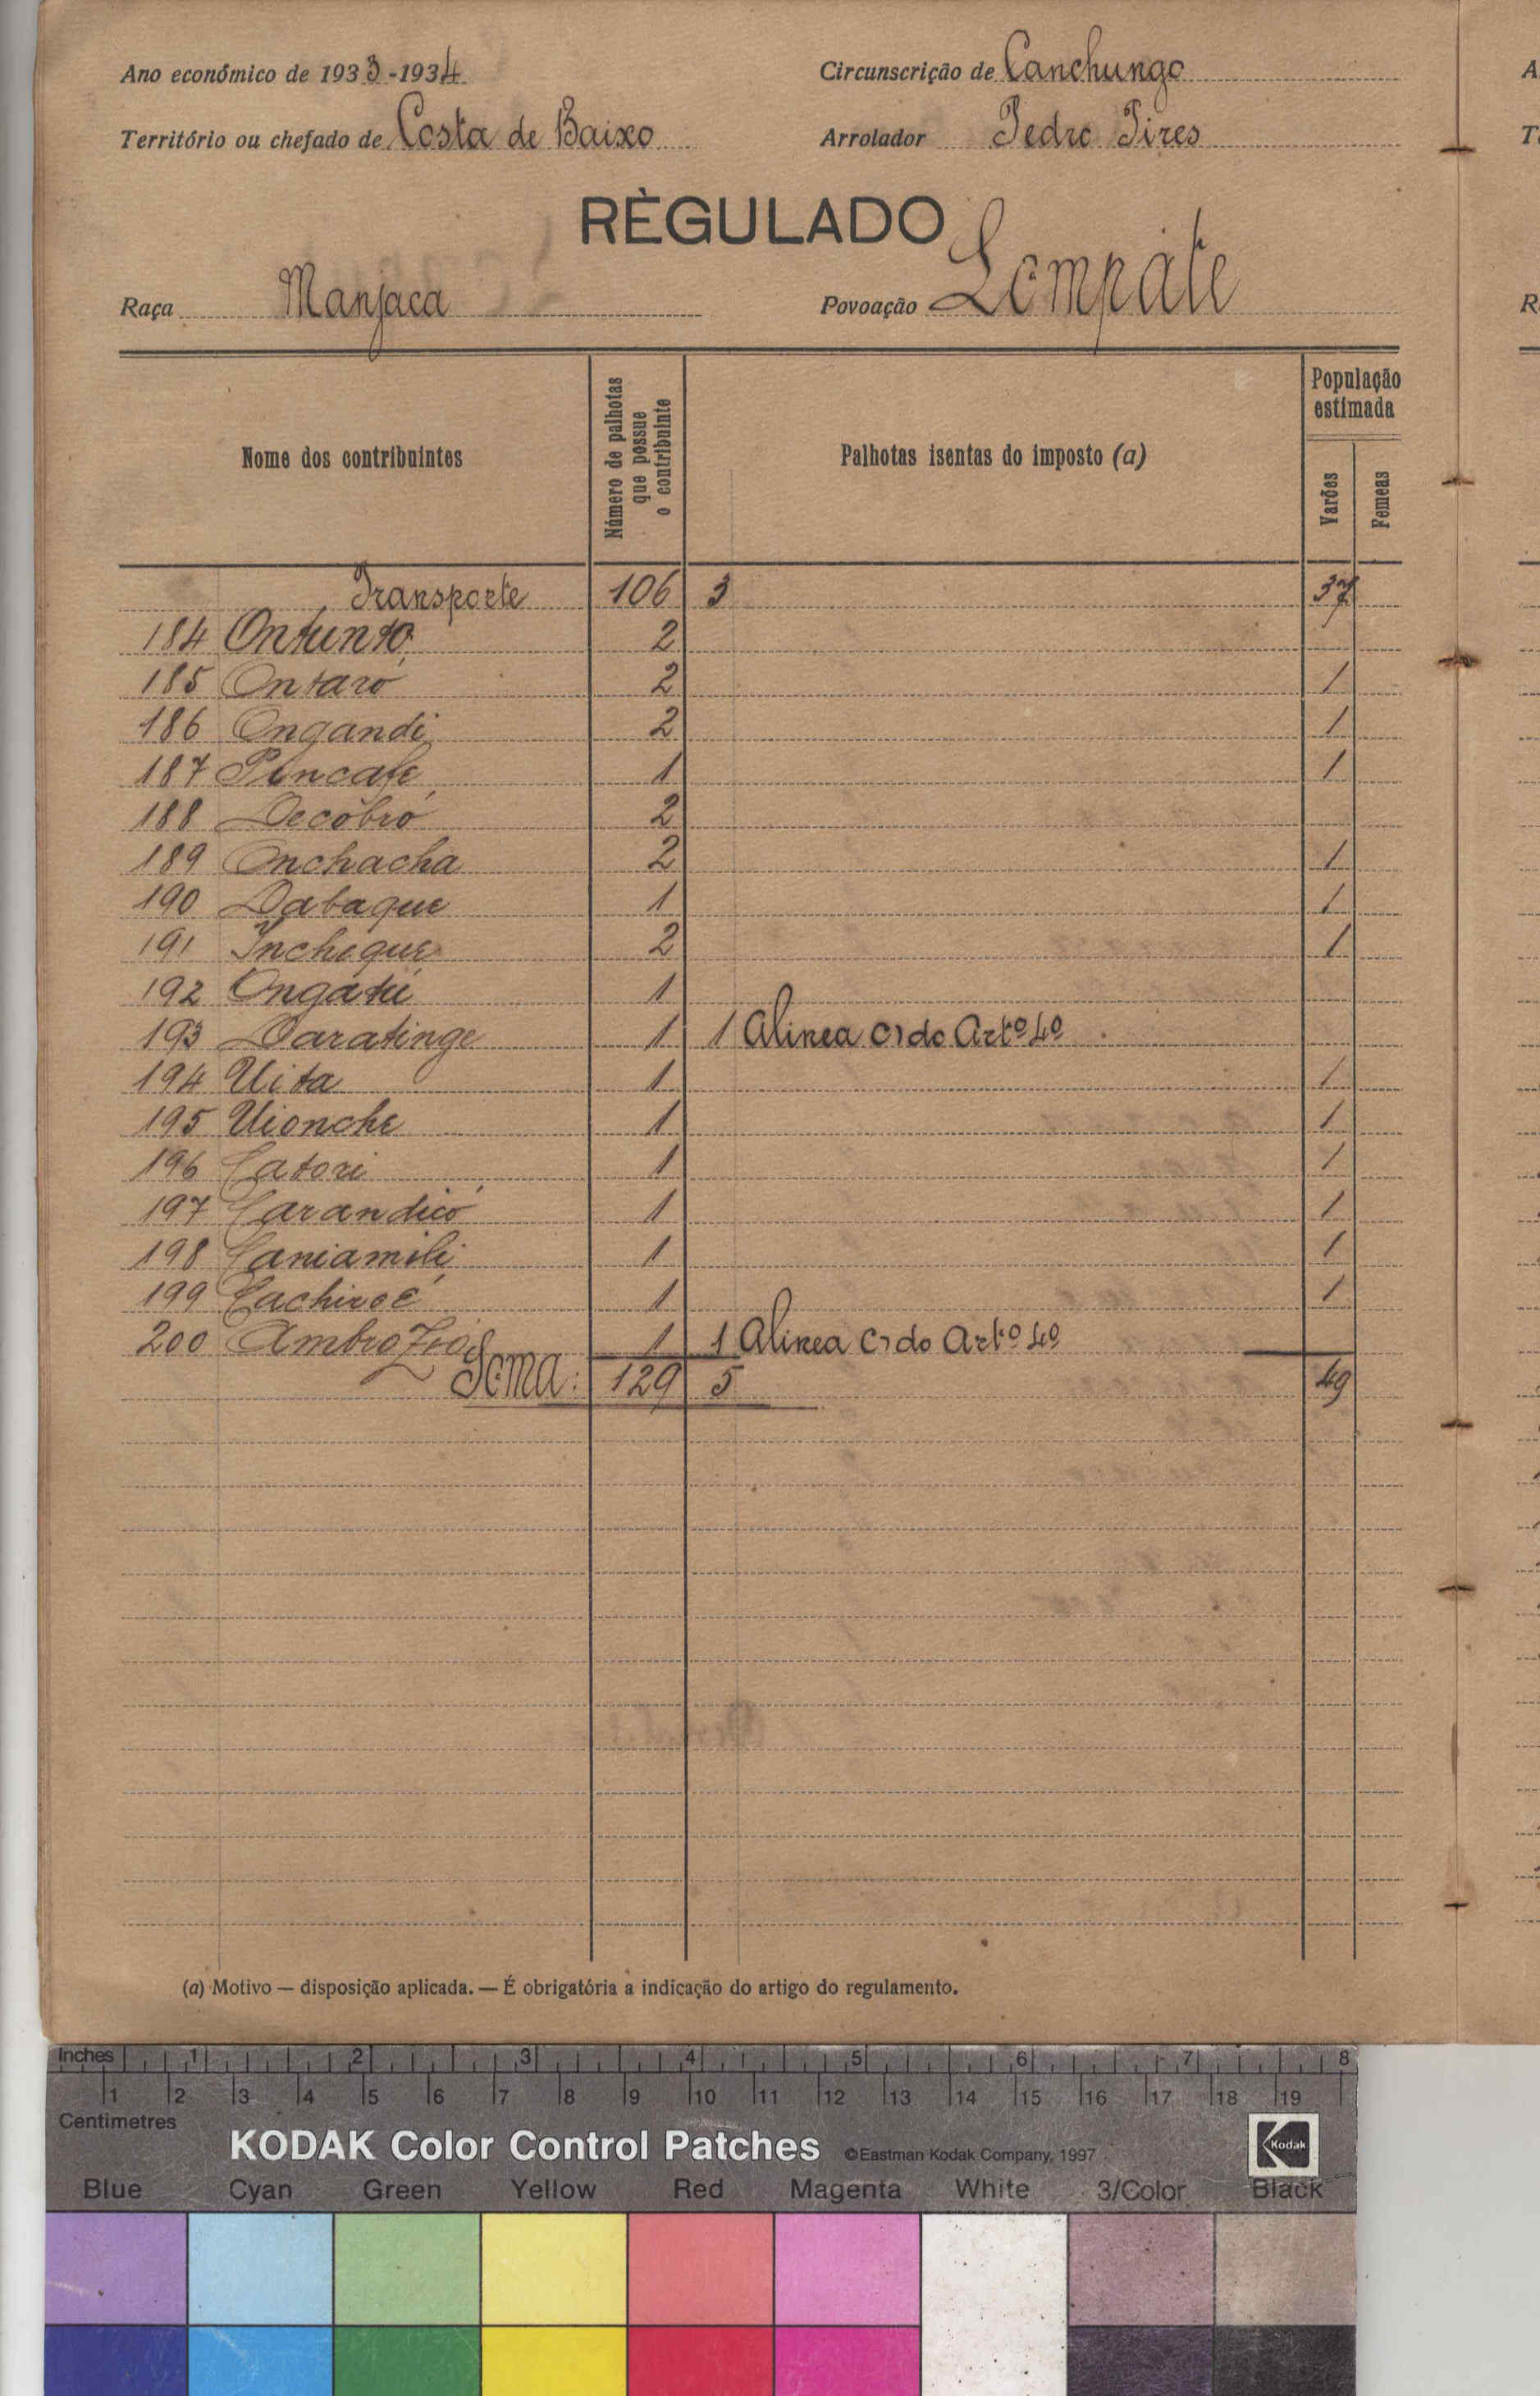 Ano económico de 1933-1934 Circunscrição de Canchungo
Território ou chefado de Costa de Baixo Arrolador Pedro Pires
RÈGULADO
Raça Manjaca Povoação Lempate
Nome dos contribuintes
Número de palhotas que possue o contribuinte
Palhotas isentas do imposto (a)
População estimada
Varões
Femeas
Transporte 106 3 37
184 Ontunto 2
185 Ontaró 2 1
186 Ongandi 2 1
187 Pencafe 1 1
188 Decôbró 2
189 Onchacha 2 1
190 Dabaque 1 1
191 Incheque 2 1
192 Ongátu 1
193 Daratinge 1 1 Alinea c) do Artº 4º
194 Uita 1 1
195 Uionche 1 1
196 Catori 1 1
197 Carandicó 1 1
198 Caniamili 1 1
199 Cachiroé 1 1
200 Ambrozió 1 1 Alinea c) do Artº 4º
Soma: 129 5 49
(a) Motivo — disposição aplicada. — É obrigatória a indicação do artigo do regulamento.
Inches 1 2 3 4 5 6 7 8
1 2 3 4 5 6 7 8 9 10 11 12 13 14 15 16 17 18 19
Centimetres
KODAK Color Control Patches ©Eastman Kodak Company, 1997 Kodak
Blue Cyan Green Yellow Red Magenta White 3/Color Black